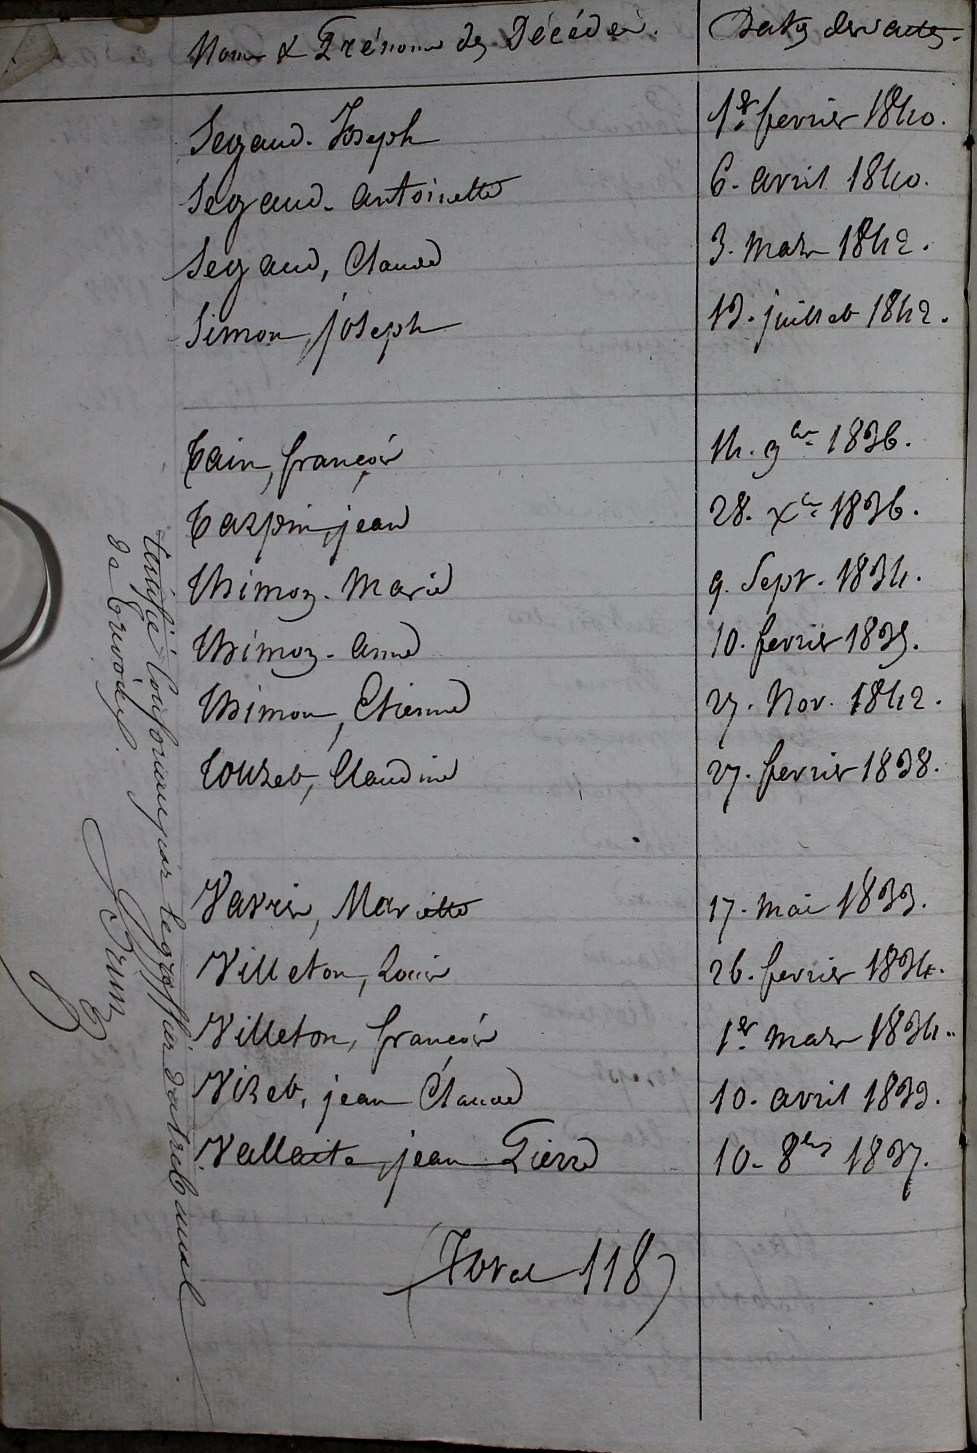 Noms & Prénoms des Décédés. Dates des actes.
Segaud. Joseph 1er fevrier 1840.
Segaud. antoinette 6. avril 1840.
Segaud, Claude 3. mars 1842.
Simon, joseph 13. juillet 1842.
Tain, françois 14. 9bre 1836.
Tarpin, jean 28. Xbre 1836.
Thimon. Marie 9. Sept. 1834.
Thimon. anne 10. fevrier 1839.
Thimon, Etienne 27. Nov. 1842.
Touzet, Claudine 27. fevrier 1838.
Vavre, Mariette 17. mai 1833.
Villeton, Louis 26. fevrier 1834.
Villeton, françois 1er mars 1834.
Vizet, jean Claude 10. avril 1833.
Vallaite jean Pierre 10. 8bre 1837.
(Total 118)
Certifié Conforme par le greffier du tribunal
de Trévoux.